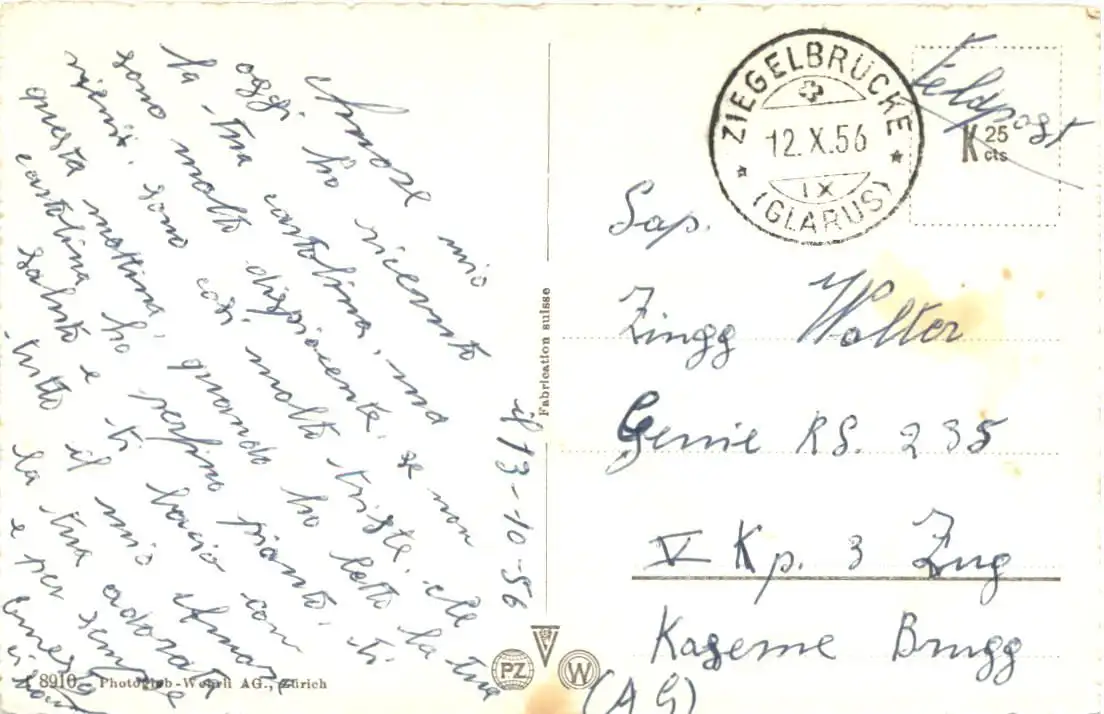 Amore mio
oggi ho ricevuto
la tua cartolina, ma
sono molto dispiacente, se non
vieni. sono così molto triste, che
questa mattina, quando ho letto la tua
cartolina ho perfino pianto. ti
saluto e ti bacio con
tutto il mio Amore
la tua adorata
e per sempre
il 13-10-56
Fabrication suisse
8910 Photoglob-Wehrli AG., Zürich
PZ W
ZIEGELBRÜCKE
12.X.56
IX
(GLARUS)
Feldpost
K 25 cts
Sap.
Zingg Walter
Genie RS. 235
V Kp. 3 Zug
Kaserne Brugg
(AG)